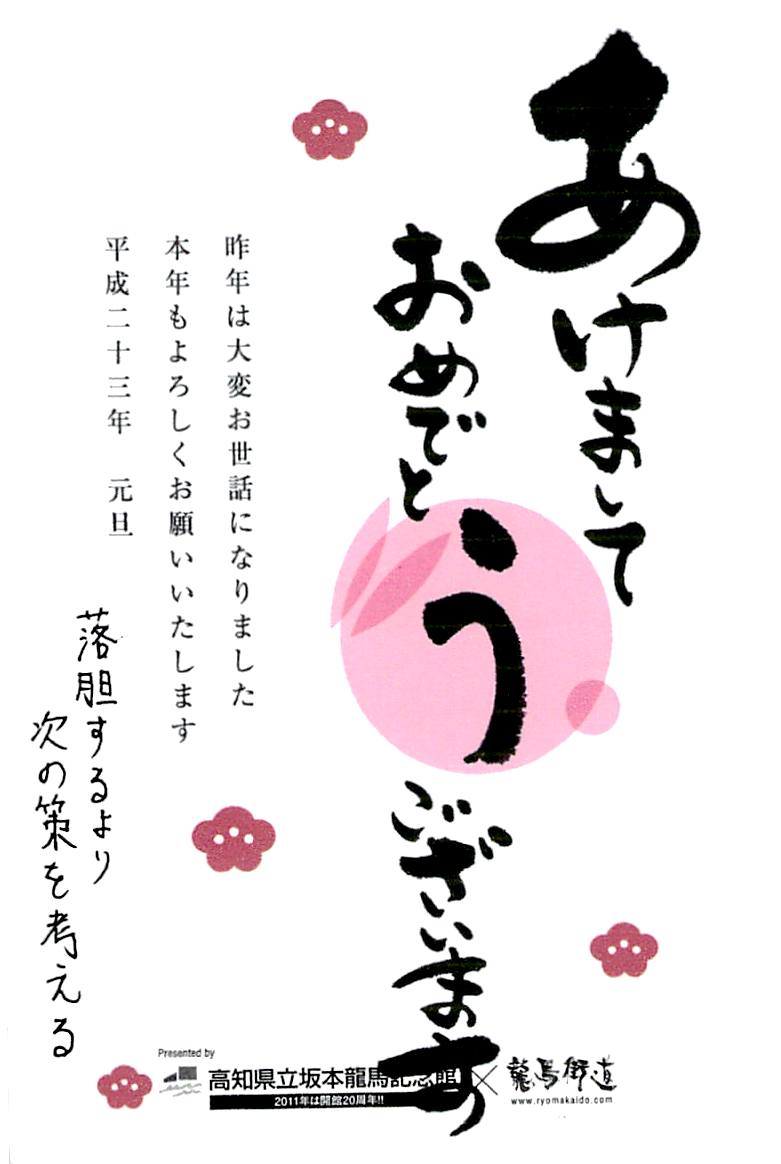 あけまして
おめでとう
ございます
昨年は大変お世話になりました
本年もよろしくお願いいたします
平成二十三年　元旦
落胆するより
次の策を考える
Presented by
高知県立坂本龍馬記念館
2011年は開館20周年!!
×
龍馬街道
www.ryomakaido.com